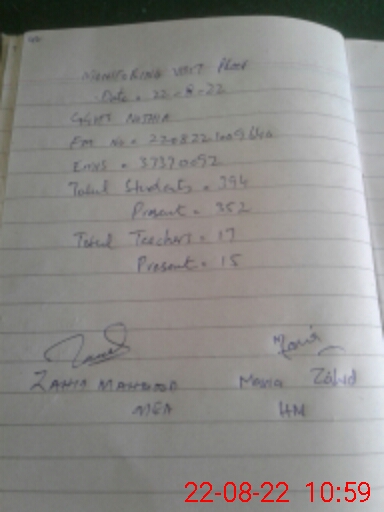 MONITORING VISIT Proof
Date = 22-8-22
GGHS
EM No = 220822100964
EMIS = 37370092
Total Students = 394
Present = 352
Total Teachers = 17
Present = 15
ZAHID MAHMOOD
Maria Zahid
MEA
HM
22-08-22 10:59